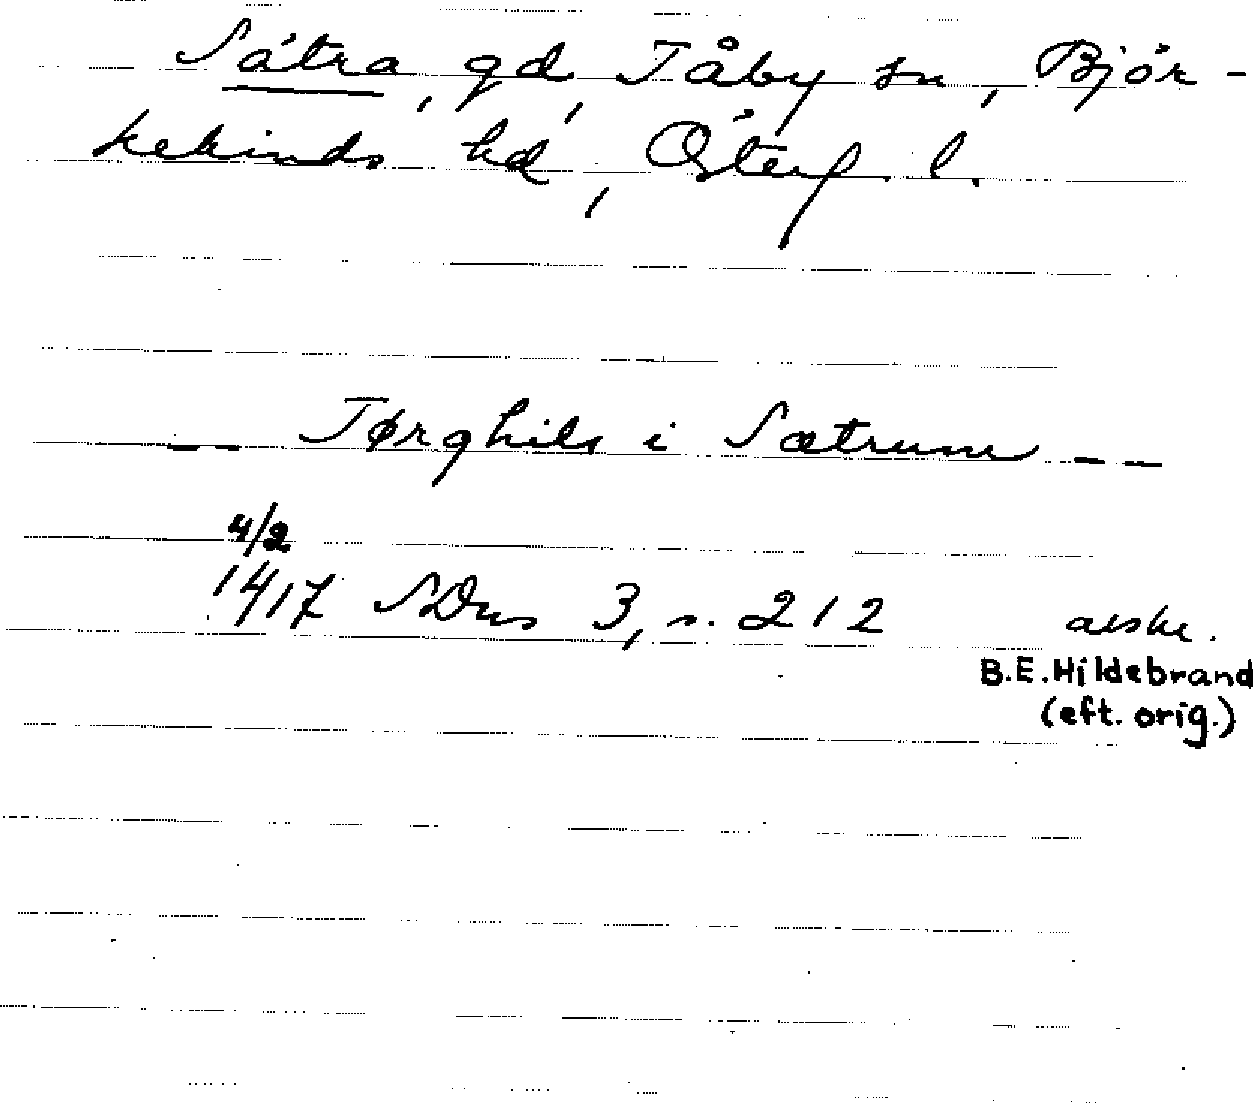 Sätra, gd, Tåby sn, Björ-
kekinds hd, Österg. l.
— — Tørghils i Sætrum — —
4/2
1417 SDns 3, s. 212 avskr.
B.E. Hildebrand
(eft. orig.)